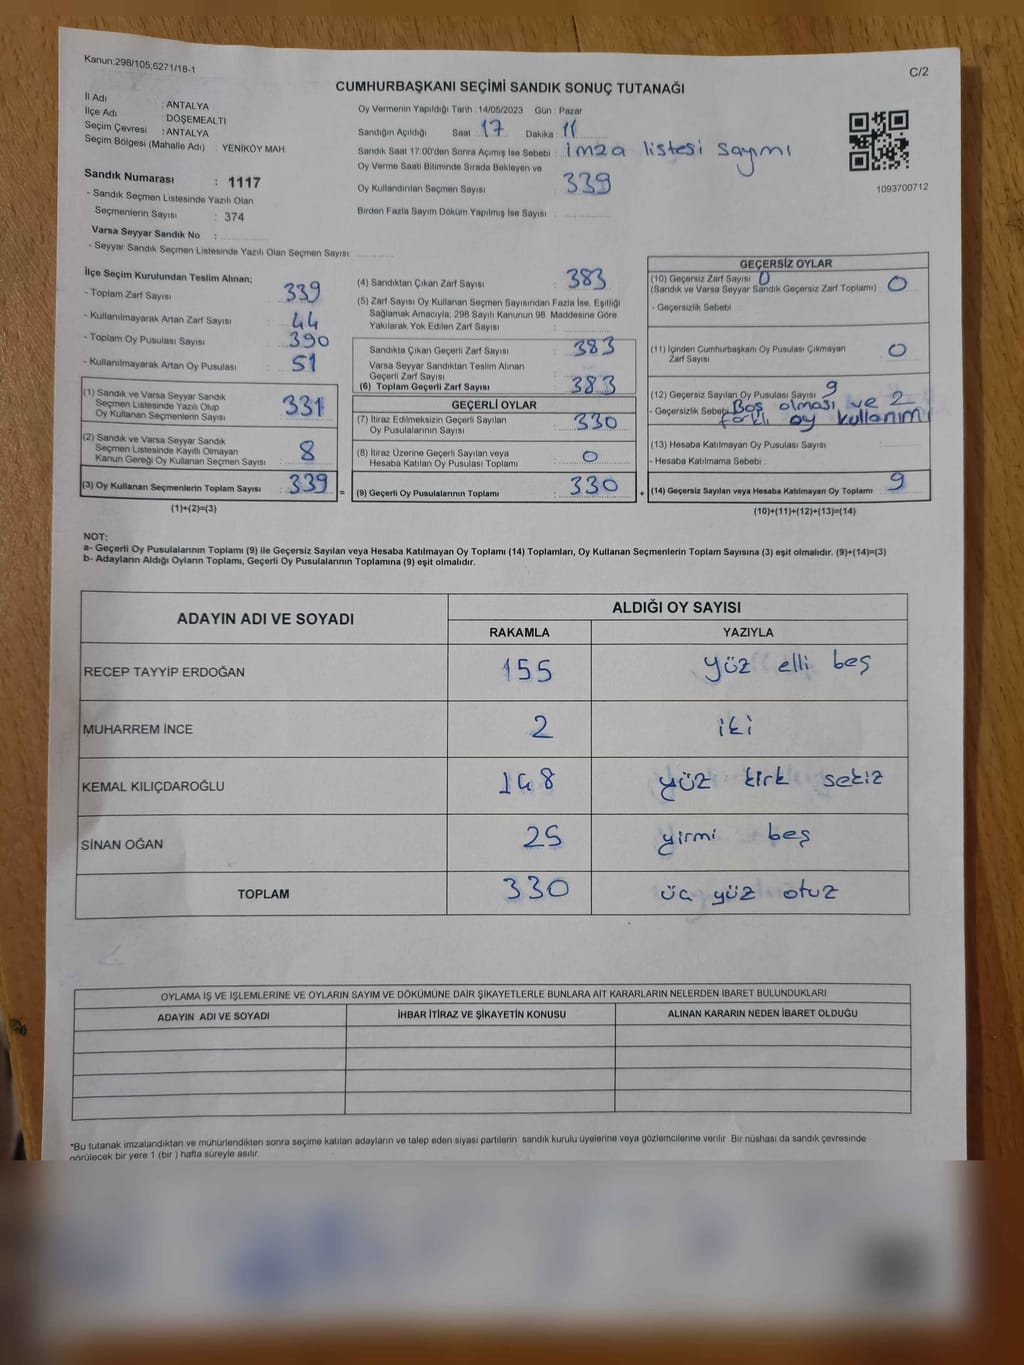 Kanun;298/105;6271/18-1
C/2
CUMHURBAŞKANI SEÇİMİ SANDIK SONUÇ TUTANAĞI
İl Adı : ANTALYA
İlçe Adı : DÖŞEMEALTI
Seçim Çevresi : ANTALYA
Seçim Bölgesi (Mahalle Adı) : YENİKÖY MAH
Sandık Numarası : 1117
- Sandık Seçmen Listesinde Yazılı Olan
Seçmenlerin Sayısı : 374
Varsa Seyyar Sandık No :
- Seyyar Sandık Seçmen Listesinde Yazılı Olan Seçmen Sayısı
Oy Vermenin Yapıldığı Tarih : 14/05/2023 Gün : Pazar
Sandığın Açıldığı Saat : 17 Dakika : 11
Sandık Saat 17:00'den Sonra Açımış İse Sebebi : imza listesi sayımı
Oy Verme Saati Bitiminde Sırada Bekleyen ve
Oy Kullandırılan Seçmen Sayısı : 339
Birden Fazla Sayım Döküm Yapılmış İse Sayısı
1093700712
İlçe Seçim Kurulundan Teslim Alınan;
- Toplam Zarf Sayısı : 339
- Kullanılmayarak Artan Zarf Sayısı : 44
- Toplam Oy Pusulası Sayısı : 390
- Kullanılmayarak Artan Oy Pusulası : 51
(1) Sandık ve Varsa Seyyar Sandık
Seçmen Listesinde Yazılı Olup
Oy Kullanan Seçmenlerin Sayısı : 331
(2) Sandık ve Varsa Seyyar Sandık
Seçmen Listesinde Kayıtlı Olmayan
Kanun Gereği Oy Kullanan Seçmen Sayısı : 8
(3) Oy Kullanan Seçmenlerin Toplam Sayısı : 339 =
(1)+(2)=(3)
(4) Sandıktan Çıkan Zarf Sayısı : 383
(5) Zarf Sayısı Oy Kullanan Seçmen Sayısından Fazla İse, Eşitliği
Sağlamak Amacıyla, 298 Sayılı Kanunun 98. Maddesine Göre
Yakılarak Yok Edilen Zarf Sayısı :
Sandıkta Çıkan Geçerli Zarf Sayısı : 383
Varsa Seyyar Sandıktan Teslim Alınan
Geçerli Zarf Sayısı
(6) Toplam Geçerli Zarf Sayısı : 383
GEÇERLİ OYLAR
(7) İtiraz Edilmeksizin Geçerli Sayılan
Oy Pusulalarının Sayısı : 330
(8) İtiraz Üzerine Geçerli Sayılan veya
Hesaba Katılan Oy Pusulası Toplamı : 0
(9) Geçerli Oy Pusulalarının Toplamı : 330 +
GEÇERSİZ OYLAR
(10) Geçersiz Zarf Sayısı 0
(Sandık ve Varsa Seyyar Sandık Geçersiz Zarf Toplamı) : 0
- Geçersizlik Sebebi :
(11) İçinden Cumhurbaşkanı Oy Pusulası Çıkmayan
Zarf Sayısı 0
(12) Geçersiz Sayılan Oy Pusulası Sayısı 9
- Geçersizlik Sebebi Boş olması ve 2
farklı oy kullanımı
(13) Hesaba Katılmayan Oy Pusulası Sayısı :
- Hesaba Katılmama Sebebi :
(14) Geçersiz Sayılan veya Hesaba Katılmayan Oy Toplamı : 9
(10)+(11)+(12)+(13)=(14)
NOT:
a- Geçerli Oy Pusulalarının Toplamı (9) ile Geçersiz Sayılan veya Hesaba Katılmayan Oy Toplamı (14) Toplamları, Oy Kullanan Seçmenlerin Toplam Sayısına (3) eşit olmalıdır. (9)+(14)=(3)
b- Adayların Aldığı Oyların Toplamı, Geçerli Oy Pusulalarının Toplamına (9) eşit olmalıdır.
ADAYIN ADI VE SOYADI ALDIĞI OY SAYISI
RAKAMLA YAZIYLA
RECEP TAYYİP ERDOĞAN 155 yüz elli beş
MUHARREM İNCE 2 iki
KEMAL KILIÇDAROĞLU 148 yüz kırk sekiz
SİNAN OĞAN 25 yirmi beş
TOPLAM 330 üç yüz otuz
OYLAMA İŞ VE İŞLEMLERİNE VE OYLARIN SAYIM VE DÖKÜMÜNE DAİR ŞİKAYETLERLE BUNLARA AİT KARARLARIN NELERDEN İBARET BULUNDUKLARI
ADAYIN ADI VE SOYADI İHBAR İTİRAZ VE ŞİKAYETİN KONUSU ALINAN KARARIN NEDEN İBARET OLDUĞU
*Bu tutanak imzalandıktan ve mühürlendikten sonra seçime katılan adayların ve talep eden siyasi partilerin sandık kurulu üyelerine veya gözlemcilerine verilir. Bir nüshası da sandık çevresinde
görülecek bir yere 1 (bir ) hafta süreyle asılır.